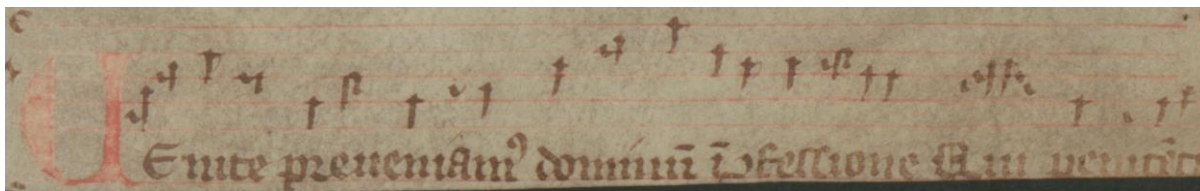 UEnite preueniamꝰ dominū ī ꝯfessione Qui penitēt